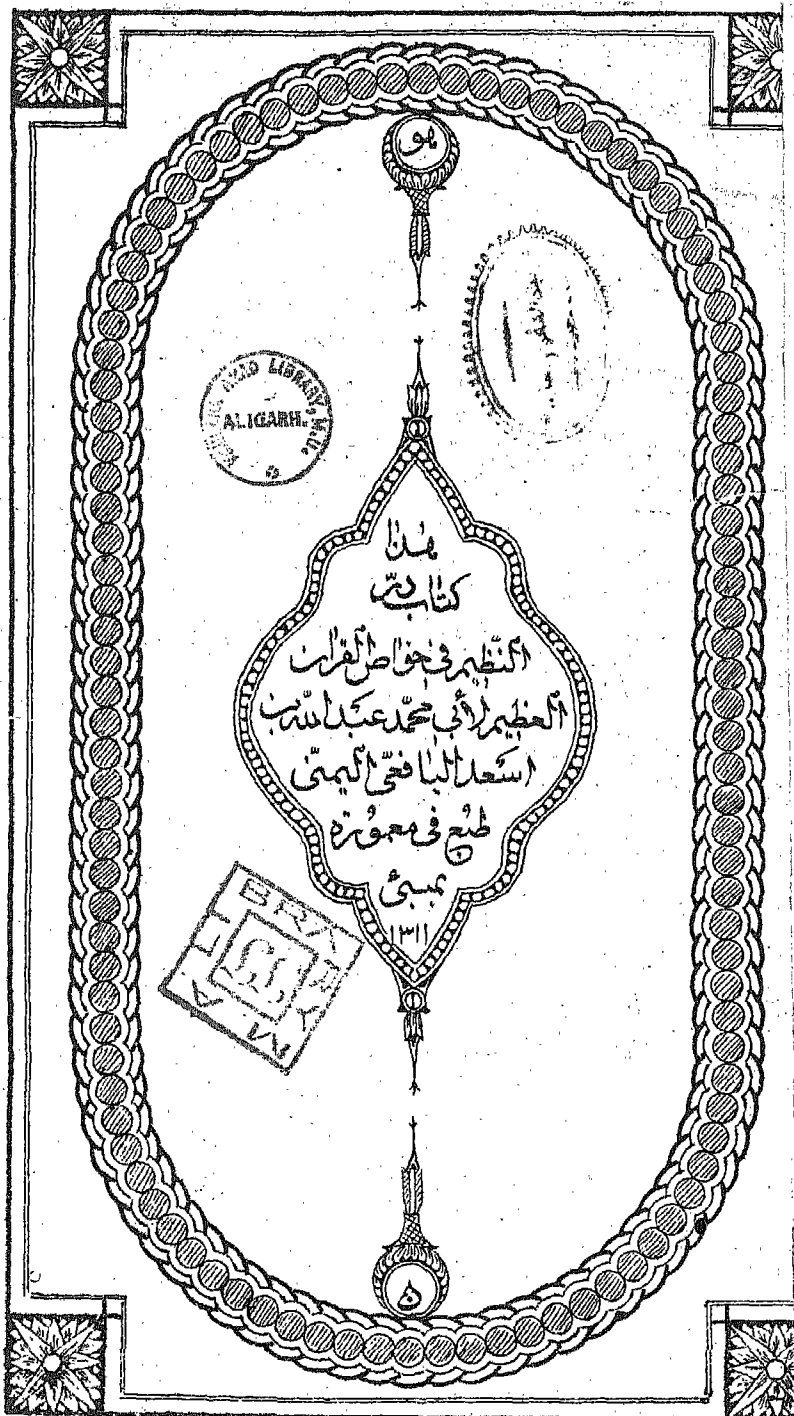 هو
LIBRARY, M.U.
ALIGARH.
هذا
كتاب درّ
النّظيم في خواص القران
العظيم لأبي محمّد عبد اللّه بن
اسعد اليافعيّ اليمنيّ
طبع في معمورة
بمبئ
١٣١١
LIBRARY
ن